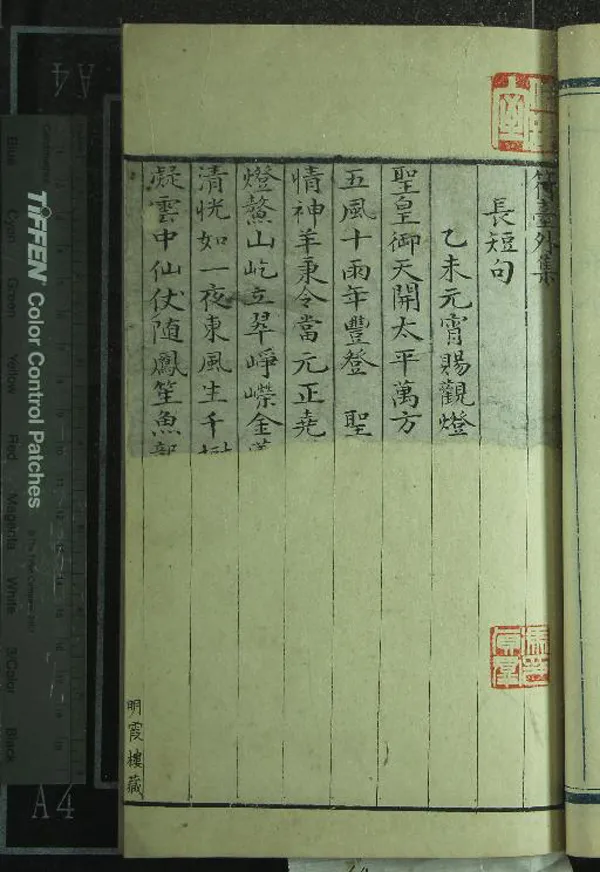 符臺外集
長短句
乙未元宵賜觀燈
聖皇御天開太平萬方
五風十雨年豐登 聖
情神羊秉令當元正堯
燈鰲山屹立翠崢嶸金
清恍如一夜東風生千樹
凝雲中仙仗随鳳笙魚部
明霞樓藏
TIFFEN Color Control Patches
Blue
Cyan
Green
Yellow
Red
Magenta
White
3/Color
Black
A4
A4